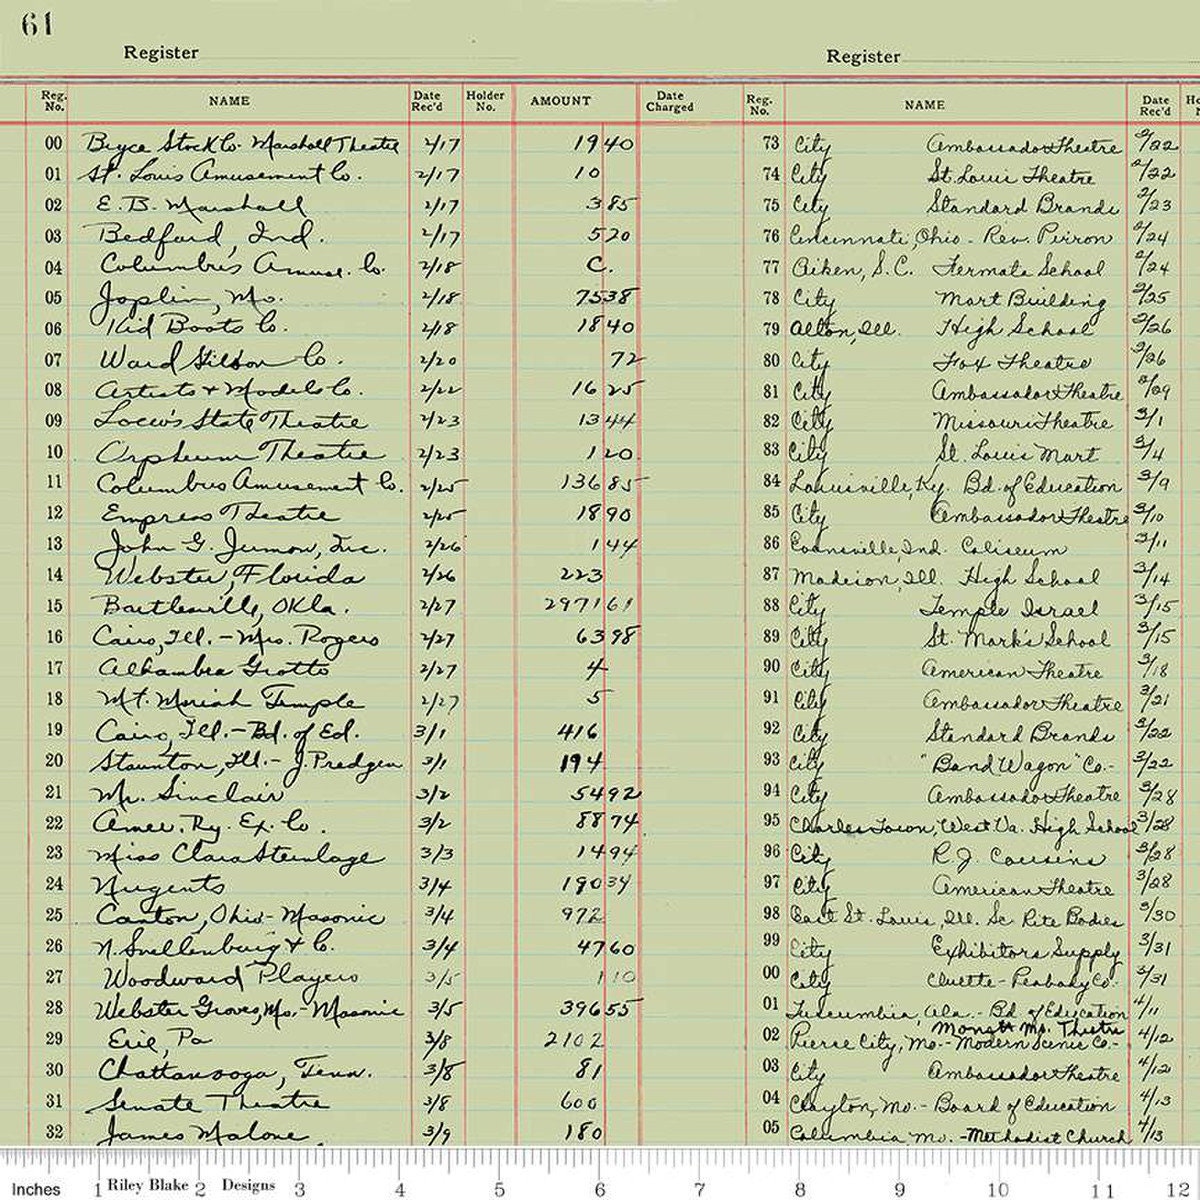 61
Register
Reg. No. NAME Date Rec'd Holder No. AMOUNT Date Charged
00 Bryce Stock Co. Marshall Theatre 2/17 19 40
01 St. Louis Amusement Co. 2/17 10
02 E. B. Marshall 2/17 3 85
03 Bedford, Ind. 2/17 5 20
04 Columbus Amuse. Co. 2/18 C.
05 Joplin, Mo. 2/18 75 38
06 Kid Boots Co. 2/18 18 40
07 Ward Co. 2/20 72
08 Artists & Models Co. 2/22 16 25
09 Loew's State Theatre 2/23 13 44
10 Orpheum Theatre 2/23 1 20
11 Columbus Amusement Co. 2/25 136 85
12 Empress Theatre 2/25 18 90
13 John G. Inc. 2/26 1 44
14 Webster, Florida 2/26 223
15 Bartlesville, Okla. 2/27 2971 61
16 Cairo, Ill. - Mrs. Rogers 2/27 63 98
17 Alhambra Grotto 2/27 4
18 Mt. Moriah Temple 2/27 5
19 Cairo, Ill. - Bd. of Ed. 3/1 416
20 Staunton, Ill. - J. 3/1 194
21 Mr. Sinclair 3/2 54 92
22 Amer. Ry. Ex. Co. 3/2 88 74
23 Miss Clara Steinlage 3/3 14 94
24 Nugents 3/4 190 34
25 Canton, Ohio - Masonic 3/4 972
26 N. Snellenburg & Co. 3/4 47 60
27 Woodward Players 3/5 1 10
28 Webster Groves, Mo. - Masonic 3/5 396 55
29 Erie, Pa 3/8 2102
30 Chattanooga, Tenn. 3/8 81
31 Senate Theatre 3/8 600
32 James Malone 3/9 180
Register
Reg. No. NAME Date Rec'd
73 City Ambassador Theatre 2/22
74 City St. Louis Theatre 2/22
75 City Standard Brands 2/23
76 Cincinnati, Ohio - Rev. 2/24
77 Aiken, S.C. Fermata School 2/24
78 City Mart Building 2/25
79 Alton, Ill. High School 2/26
80 City Fox Theatre 2/26
81 City Ambassador Theatre 2/29
82 City Missouri Theatre 3/1
83 City St. Louis Mart 3/4
84 Louisville, Ky. Bd. of Education 3/9
85 City Ambassador Theatre 3/10
86 Evansville, Ind. Coliseum 3/11
87 Madison, Ill. High School 3/14
88 City Temple Israel 3/15
89 City St. Mark's School 3/15
90 City American Theatre 3/18
91 City Ambassador Theatre 3/21
92 City Standard Brands 3/22
93 City "Band Wagon" Co. - 3/22
94 City Ambassador Theatre 3/28
95 Charles Town, West Va. High School 3/28
96 City R. J. Cousins 3/28
97 City American Theatre 3/28
98 East St. Louis, Ill. Sc. Rite Bodies 3/30
99 City Exhibitors Supply 3/31
00 City Cluette-Peabody Co. 3/31
01 Tuscumbia, Ala. - Bd of Education 4/11
Mo. Theatre
02 Pierce City, Mo. - Modern Scenic Co. - 4/12
03 City Ambassador Theatre 4/12
04 Clayton, Mo. - Board of Education 4/13
05 Columbia Mo. - Methodist Church 4/13
Inches 1 Riley Blake 2 Designs 3 4 5 6 7 8 9 10 11 12